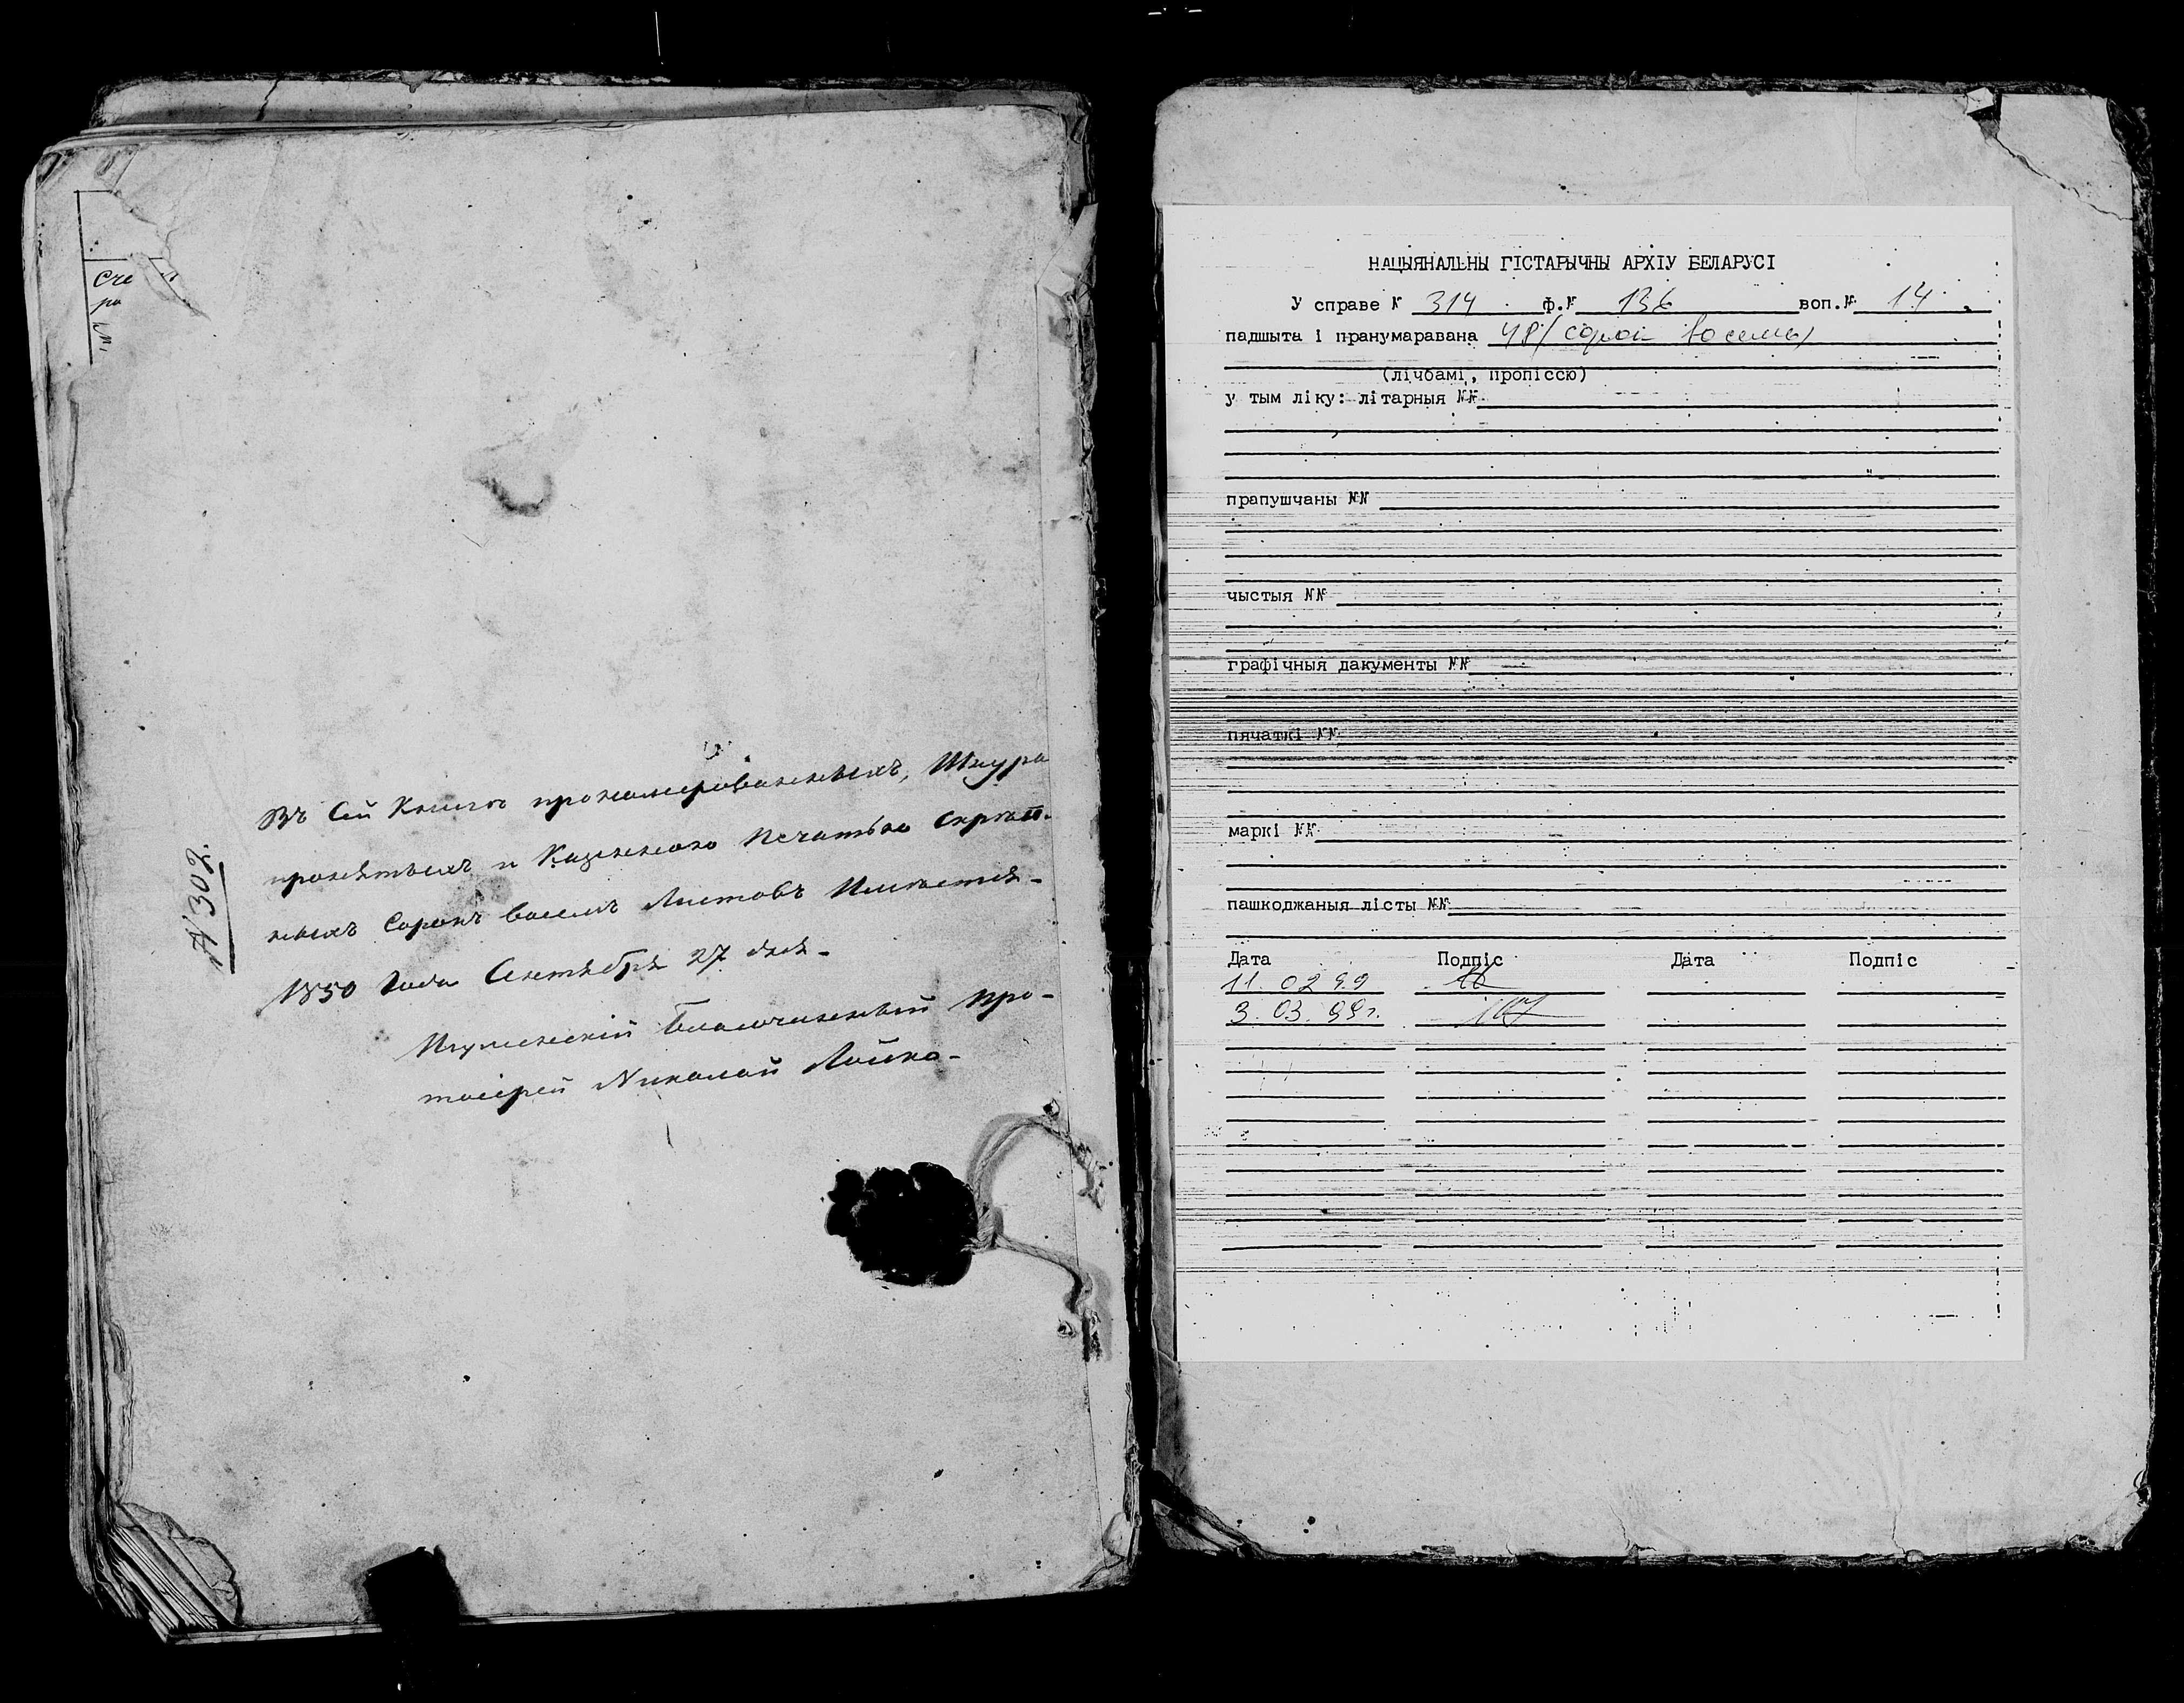 Сче
ра
№ 302.
Въ Сей Книгѣ прономерованныхъ, Шнура
пронятыхъ и Казенною Печатью скрѣп.
ныхъ Сорокъ восемь Листовъ Имѣется-
1850 Года Сентября 27 дня-
Игуменскій Благочинный Про-
тоіерей Николай Лойко-
НАЦЫЯНАЛЬНЫ ГІСТАРЫЧНЫ АРХІУ БЕЛАРУСІ
У справе № 314 ф.№ 136 воп.№ 14
падшыта і пранумаравана 48 (сорок восемь)
(лічбамі, пропіссю)
у тым ліку: літарныя №№
прапушчаны №№
чыстыя №№
графічныя дакументы №№
пячаткі №№
маркі №№
пашкоджаныя лісты №№
Дата Подпіс Дата Подпіс
11. 02 99
3. 03. 99 г.